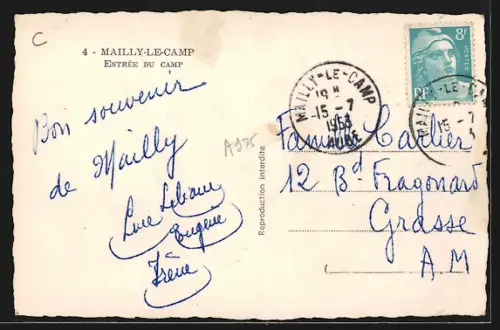 C
4 - MAILLY-LE-CAMP
ENTRÉE DU CAMP
Bon souvenir
de Mailly
Eugène
Irène
A975
Reproduction interdite
8F
RF
POSTES
MAILLY-LE-CAMP
19 H
15-7
1953
AUBE
MAILLY-LE-CAMP
15-7
Famille Carlier
12 Bd Fragonard
Grasse
A M